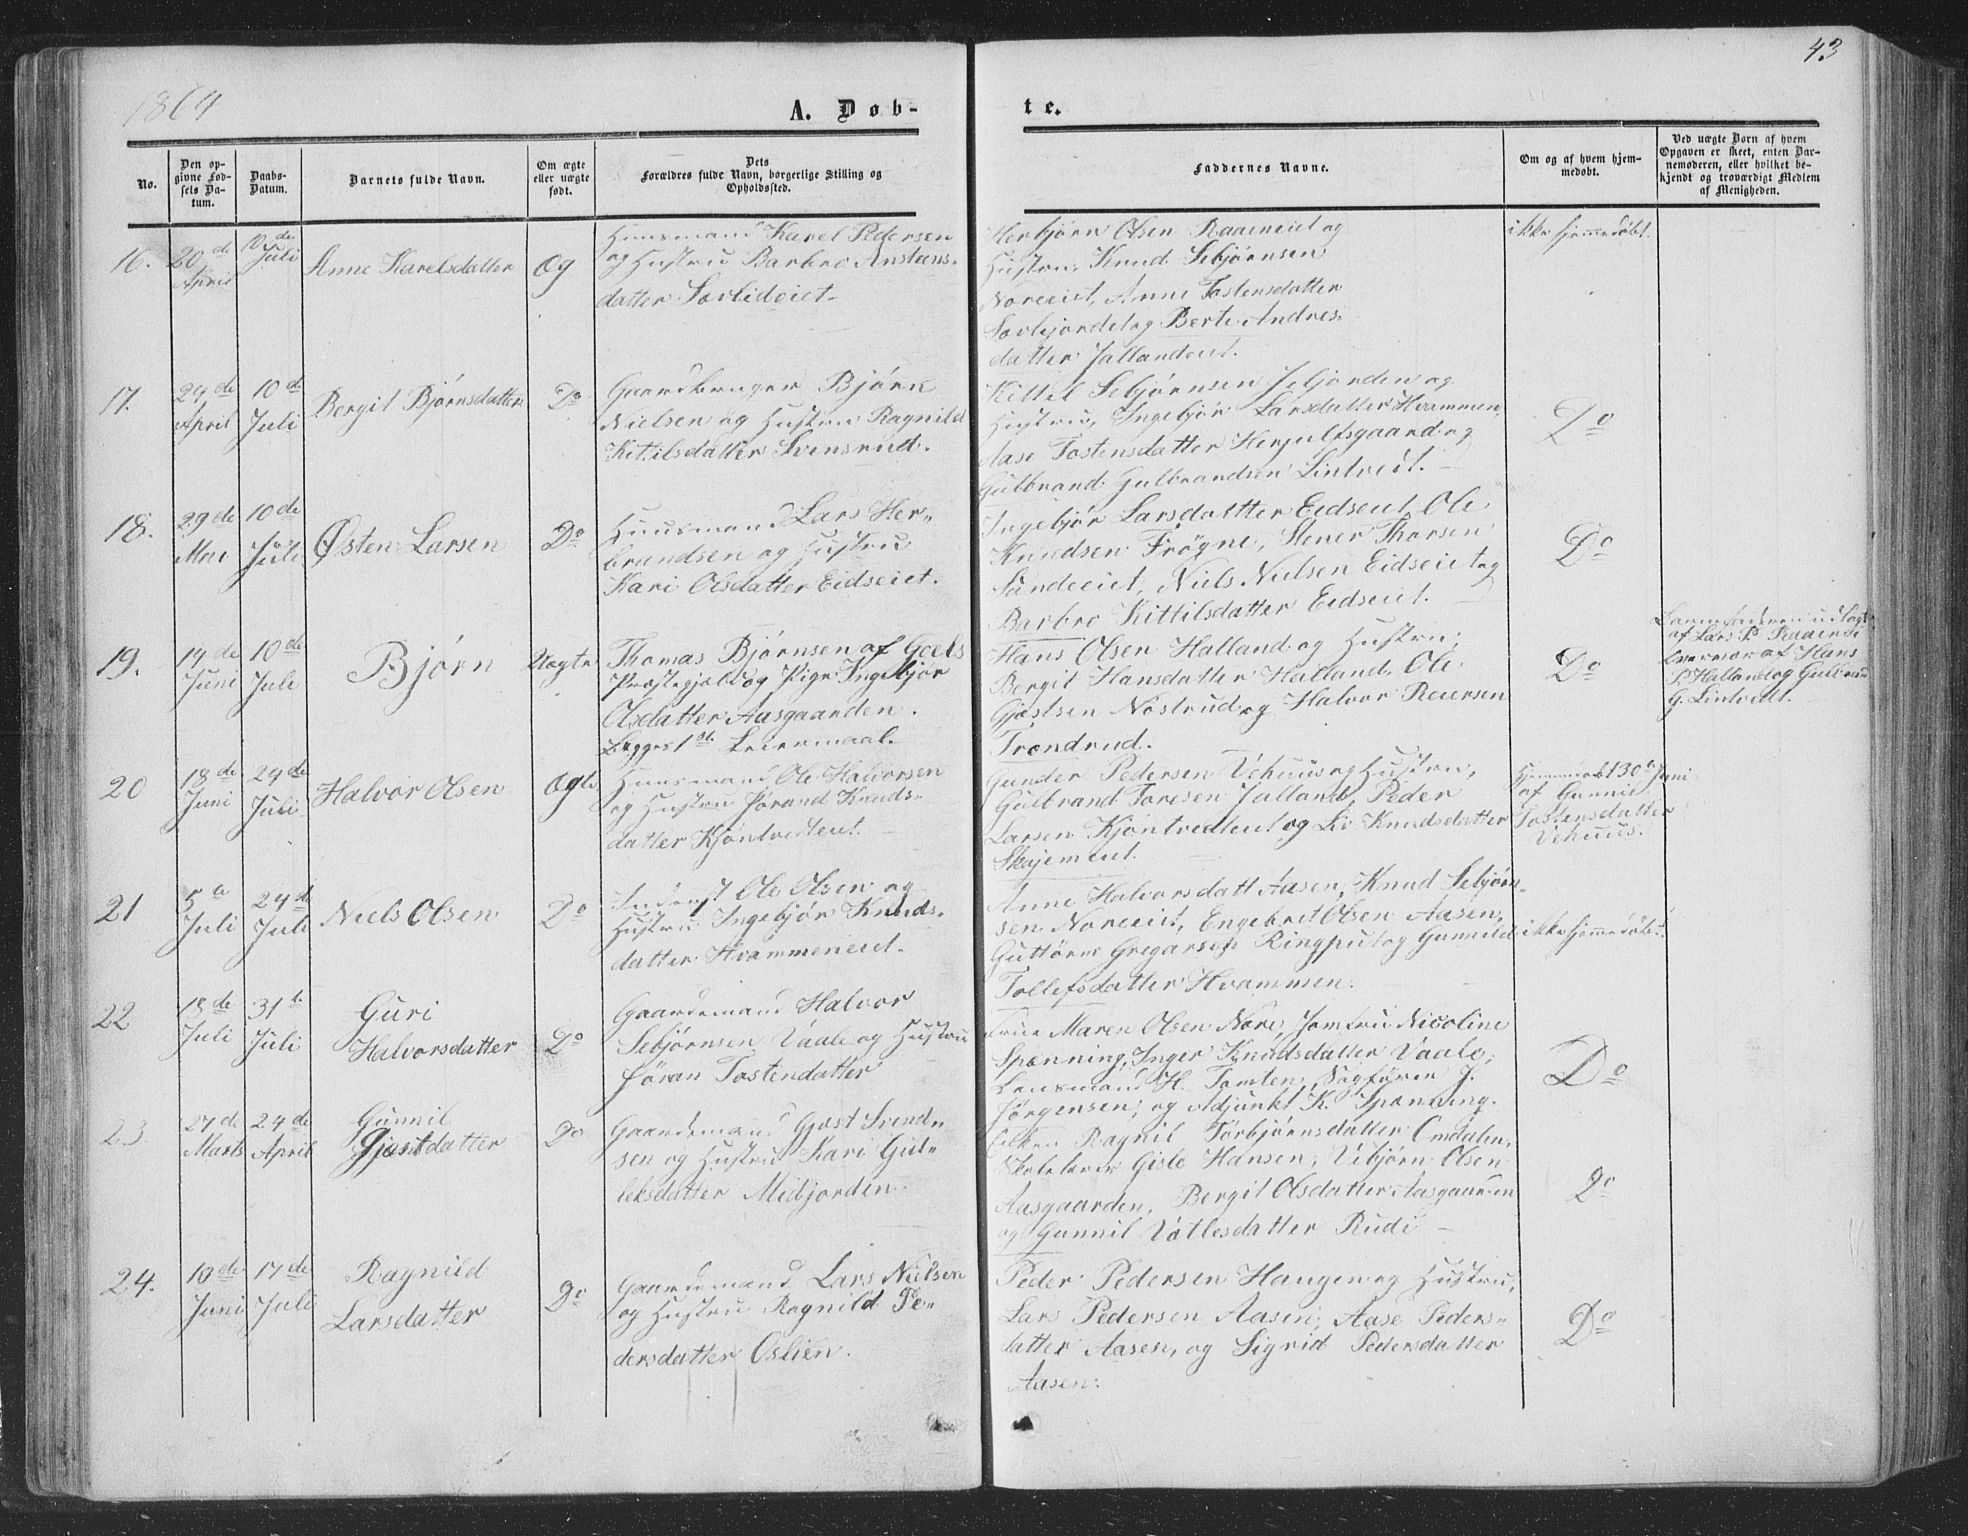 1864
A. Døb-
te.
43
No.
Den op-
givne Fød-
sels Da-
tum.
Daabs-
Datum.
Barnets fulde Navn.
Om ægte
eller uægte
født.
Dets
Forældres fulde Navn, borgerlige Stilling og
Opholdssted.
Faddernes Navne.
Om og af hvem hjem-
medøbt.
Ved uægte Børn af hvem
Opgaven er skeet, enten Bar-
nemoderen, eller hvilket be-
kjendt og troværdigt Medlem
af Menigheden.
16.
20de
April
10de
Juli
Anne Karelsdatter
Æg
Huusmand Karel Pedersen
og Hustru Barbro Anstens-
datter Sorlideiet
Herbjørn Olsen Raaeneiet og
Hustru, Knud Sebjørnsen
Noreeiet, Anne Tostensdatter
og Berte Andres-
datter Jallandeiet.
ikke hjemmedøbt.
17.
24de
April
10de
Juli
Bergit Bjørnsdatter
Do
Gaardbruger Bjørn
Nielsen og Hustru Ragnild
Kittilsdatter Svensrud.
Kittil Sebjørnsen og
Hustru, Ingebjør Larsdatter Hvammen,
Aase Tostensdatter Herjulfsgaard og
Gulbrand Gulbrandsen Lintvedt.
Do
18.
29de
Mai
10de
Juli
Østen Larsen
Do
Huusmand Lars Her-
brandsen og Hustru
Kari Olsdatter Eidseiet.
Ingebjør Larsdatter Eidseiet, Ole
Knudsen Frøgne, Stener Thorsen
Sandeeiet, Niels Nielsen Eidseiet og
Barbro Kittilsdatter Eidseiet.
Do
19.
14de
Juni
10de
Juli
Bjørn
Uægte
Thomas Bjørnsen af Goels
Præstegjeld og Pige Ingebjør
Olsdatter Aasgaarden.
Begges 1st Leiermaal.
Hans Olsen Halland og Hustru,
Bergit Hansdatter Halland, Ole
Gjøstsen Nøstrud og Halvor Reiersen
Trondrud.
Do
Barnefaderen udlagt
af Lars P.
af Hans
P. Halland og Gulbrand
G. Lintvedt.
20
18de
Juni
24de
Juli
Halvor Olsen
Ægte
Huusmand Ole Halvorsen
og Hustru Jørand Knuds-
datter Kjøntvedteiet.
Gunder Pedersen Vehuus og Hustru,
Gulbrand Toresen Jalland, Peder
Larsen Kjøntvedteiet og Liv Knudsdatter
Skajemeiet.
Hjemmedøbt 30te Juni
af Gunnil
Tostensdatter
Vehuus.
21
5te
Juli
24de
Juli
Niels Olsen
Do
Inderst Ole Olsen og
Hustru Ingebjør Knuds-
datter Hvammeneiet.
Anne Halvorsdatt Aasen, Knud Sebjørn-
sen Noreeiet, Engebret Olsen Aasen,
Guttorm Gregarsen Ringput og Gunnild
Tollefsdatter Hvammen.
ikke hjemmedøbt.
22
18de
Juli
31te
Juli
Guri
Halvorsdatter
Do
Gaardemand Halvor
Sebjørnsen Vaale og Hustru
Jøran Tostendatter
Frue Maren Olsen Nore, Jomfru Nicoline
Spænning, Inger Knudsdatter Vaale,
Lensmand H. Tomten, Sagfører J.
Jørgensen, og Adjunkt K. Spænning.
Do
23
27de
Marts
24de
April
Gunnil
Gjøstdatter
Do
Gaardemand Gjøst Svend-
sen og Hustru Kari Gul-
leksdatter Midjorden.
Ragnil Torbjørnsdatter Omdalen,
Skolelærer Gisle Hansen, Vebjørn Olsen
Aasgaarden, Bergit Olsdatter Aasgaarden
og Gunnil Vatlesdatter Rudi
Do
24.
10de
Juni
17de
Juli
Ragnild
Larsdatter
Do
Gaardemand Lars Nielsen
og Hustru Ragnild Pe-
dersdatter Oslien.
Peder Pedersen Haugen og Hustru,
Lars Pedersen Aasen, Aase Peders-
datter Aasen, og Sigrid Pedersdatter
Aasen.
Do